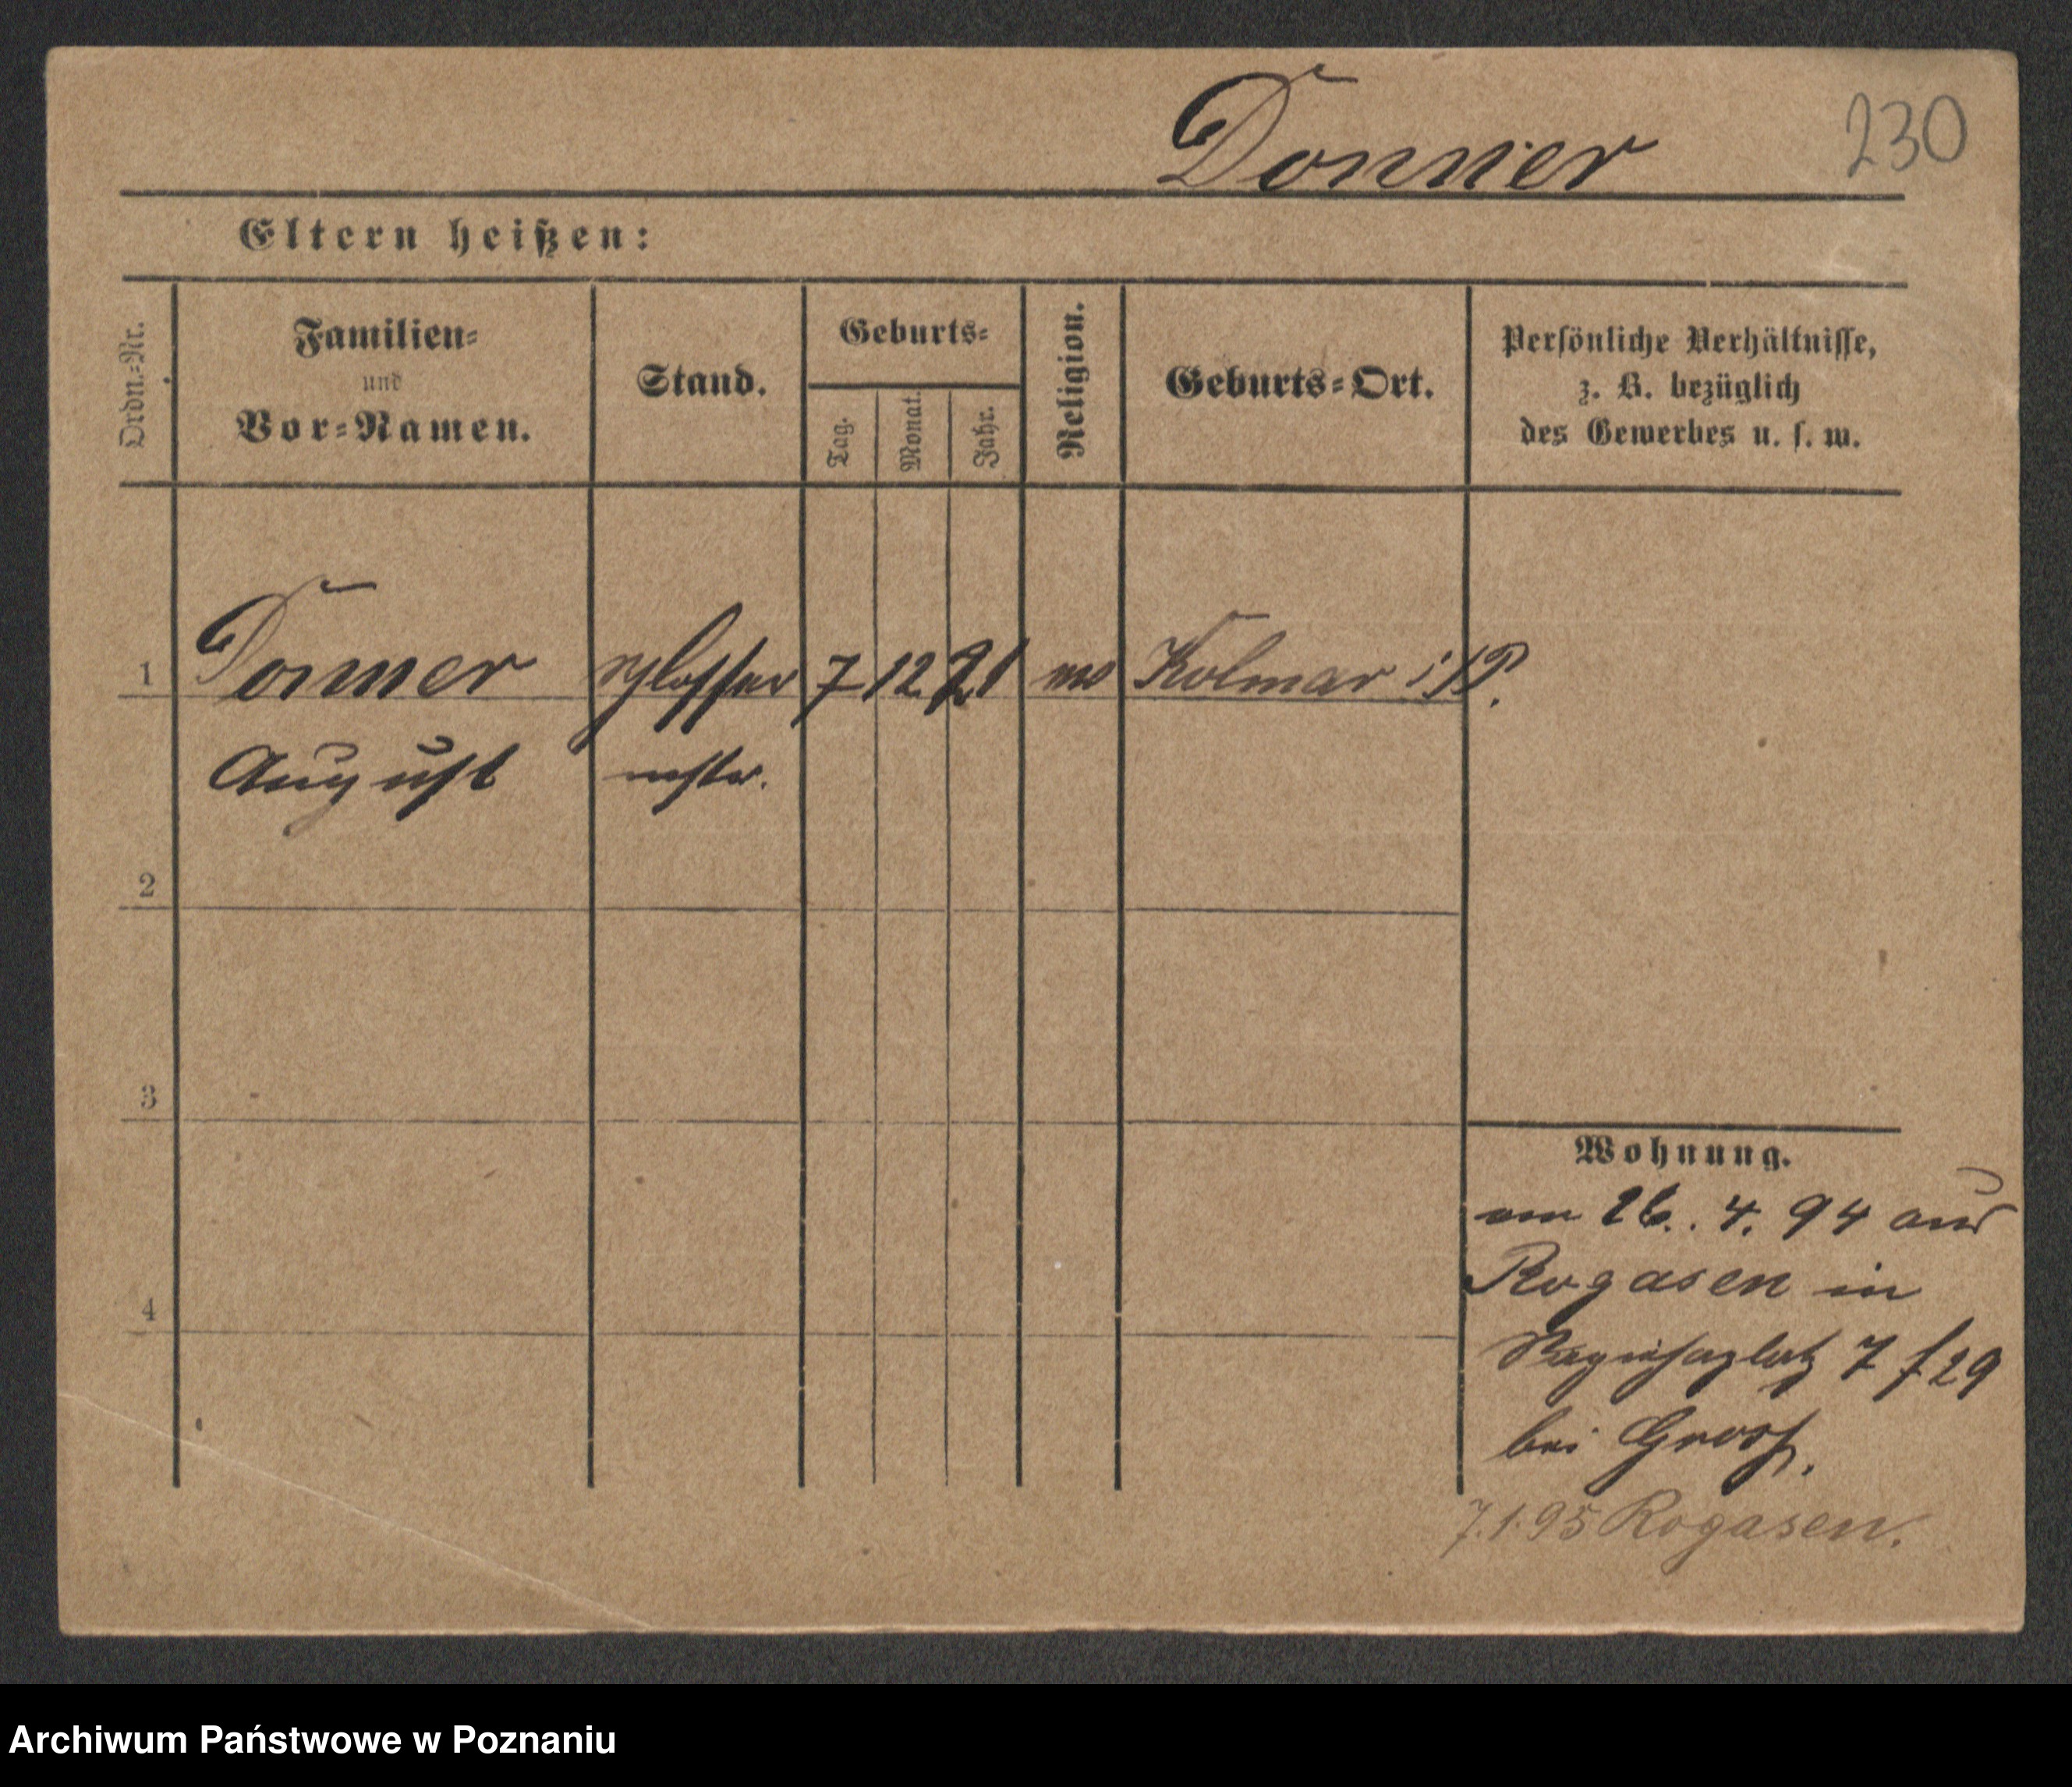 Donner
230
Eltern heißen:
Ordn.-Nr.
Familien-
und
Vor-Namen.
Stand.
Geburts-
Tag.
Monat.
Jahr.
Religion.
Geburts-Ort.
Persönliche Verhältnisse,
z. B. bezüglich
des Gewerbes u. s. w.
1
Donner
7 12 21
Kolmar i/P.
August
2
3
4
Wohnung.
26. 4. 94 aus
Rogasen in
7
bei Gross.
7.1.95 Rogasen.
Archiwum Państwowe w Poznaniu